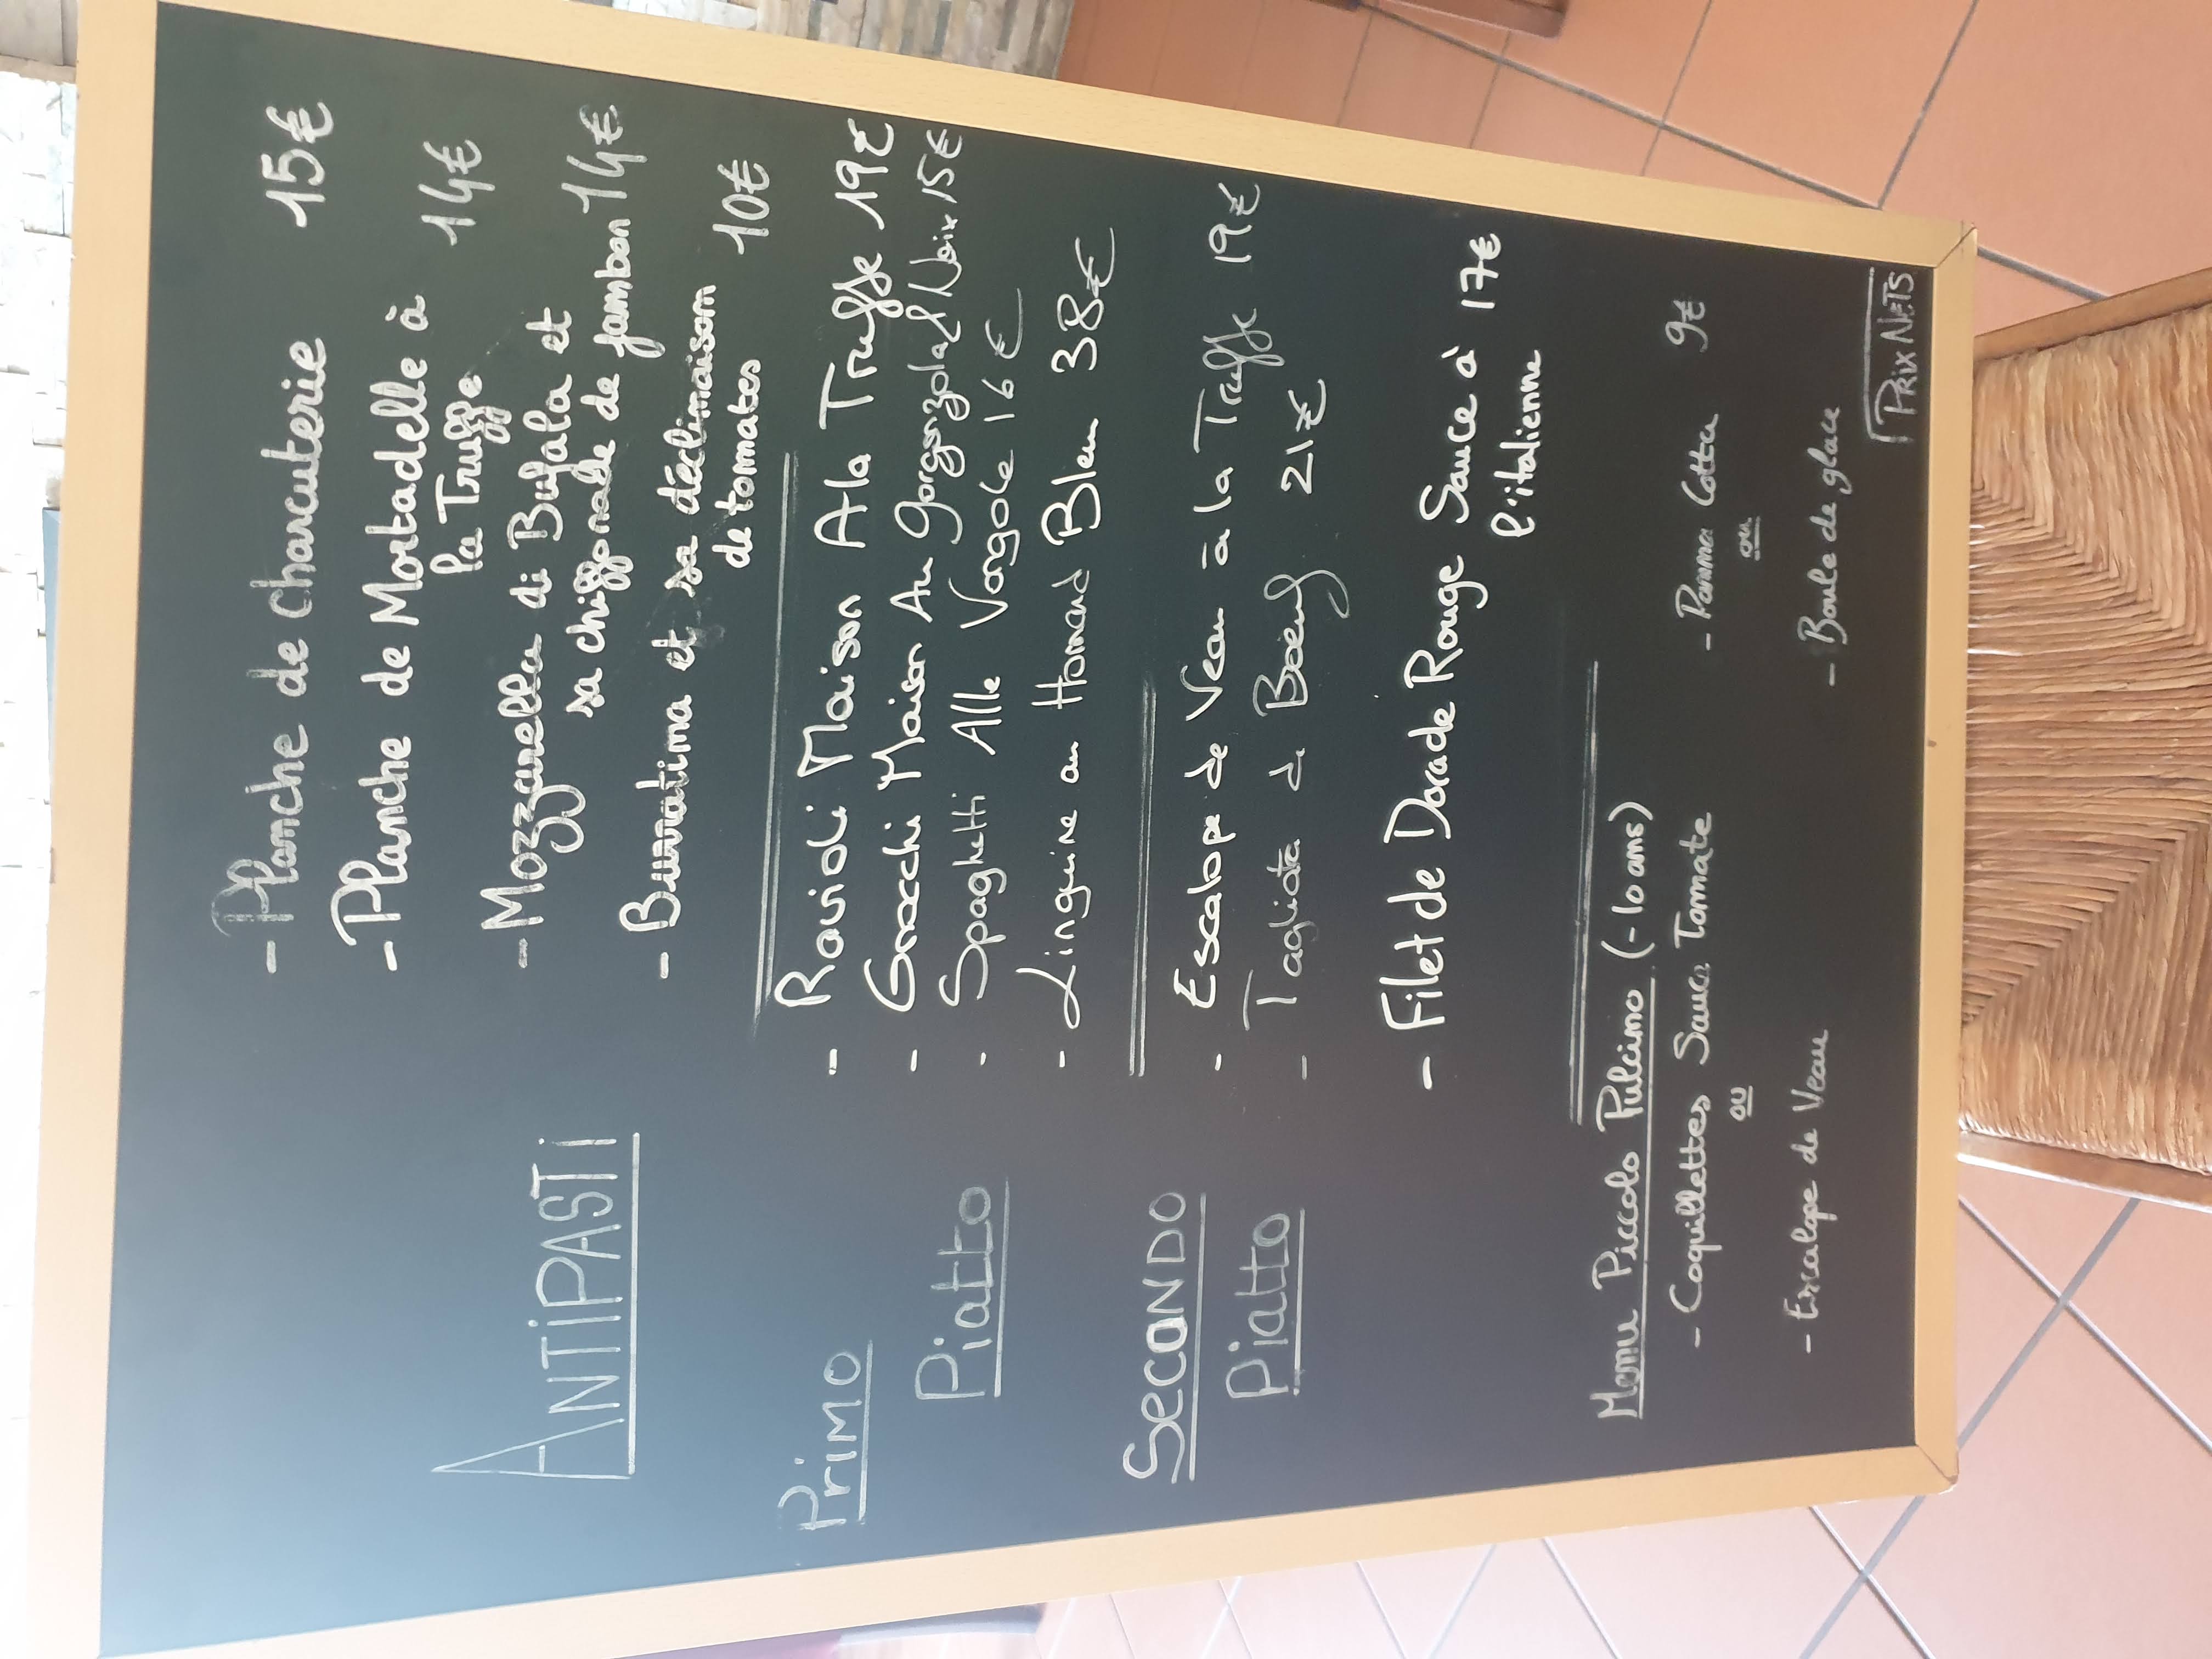 - Planche de Charcuterie 15€
- Planche de Mortadelle à
la Truffe 14€
ANTiPASTi
- Mozzarella di Bufala et
sa chiffonade de jambon 14€
- Burratina et sa déclinaison
de tomates 10€
Primo
Piatto
- Ravioli Maison A la Truffe 19€
- Gnocchi Maison Au Gorgonzola & Noix 15€
- Spaghetti Alle Vongole 16€
- Linguine au Homard Bleu 38€
SecONDO
Piatto
- Escalope de Veau à la Truffe 19€
- Tagliata de Boeuf 21€
- Filet de Dorade Rouge Sauce à 17€
l'italienne
Menu Piccolo Pulcino (-10 ans)
- Coquillettes Sauce Tomate - Panna Cotta 9€
ou ou
- Escalope de Veau - Boule de glace
PRIX NETS